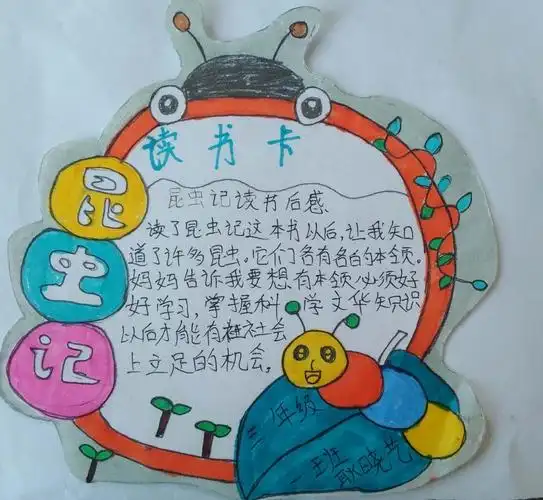 读书卡
昆
虫
记
昆虫记读书后感、
读了昆虫记这本书以后,让我知
道了许多昆虫。它们各有各自的本领。
妈妈告诉我要想有本领必须好
好学习,掌握科学文华知识
以后才能有在社会
上立足的机会。
三年级
一班
耿晓艺